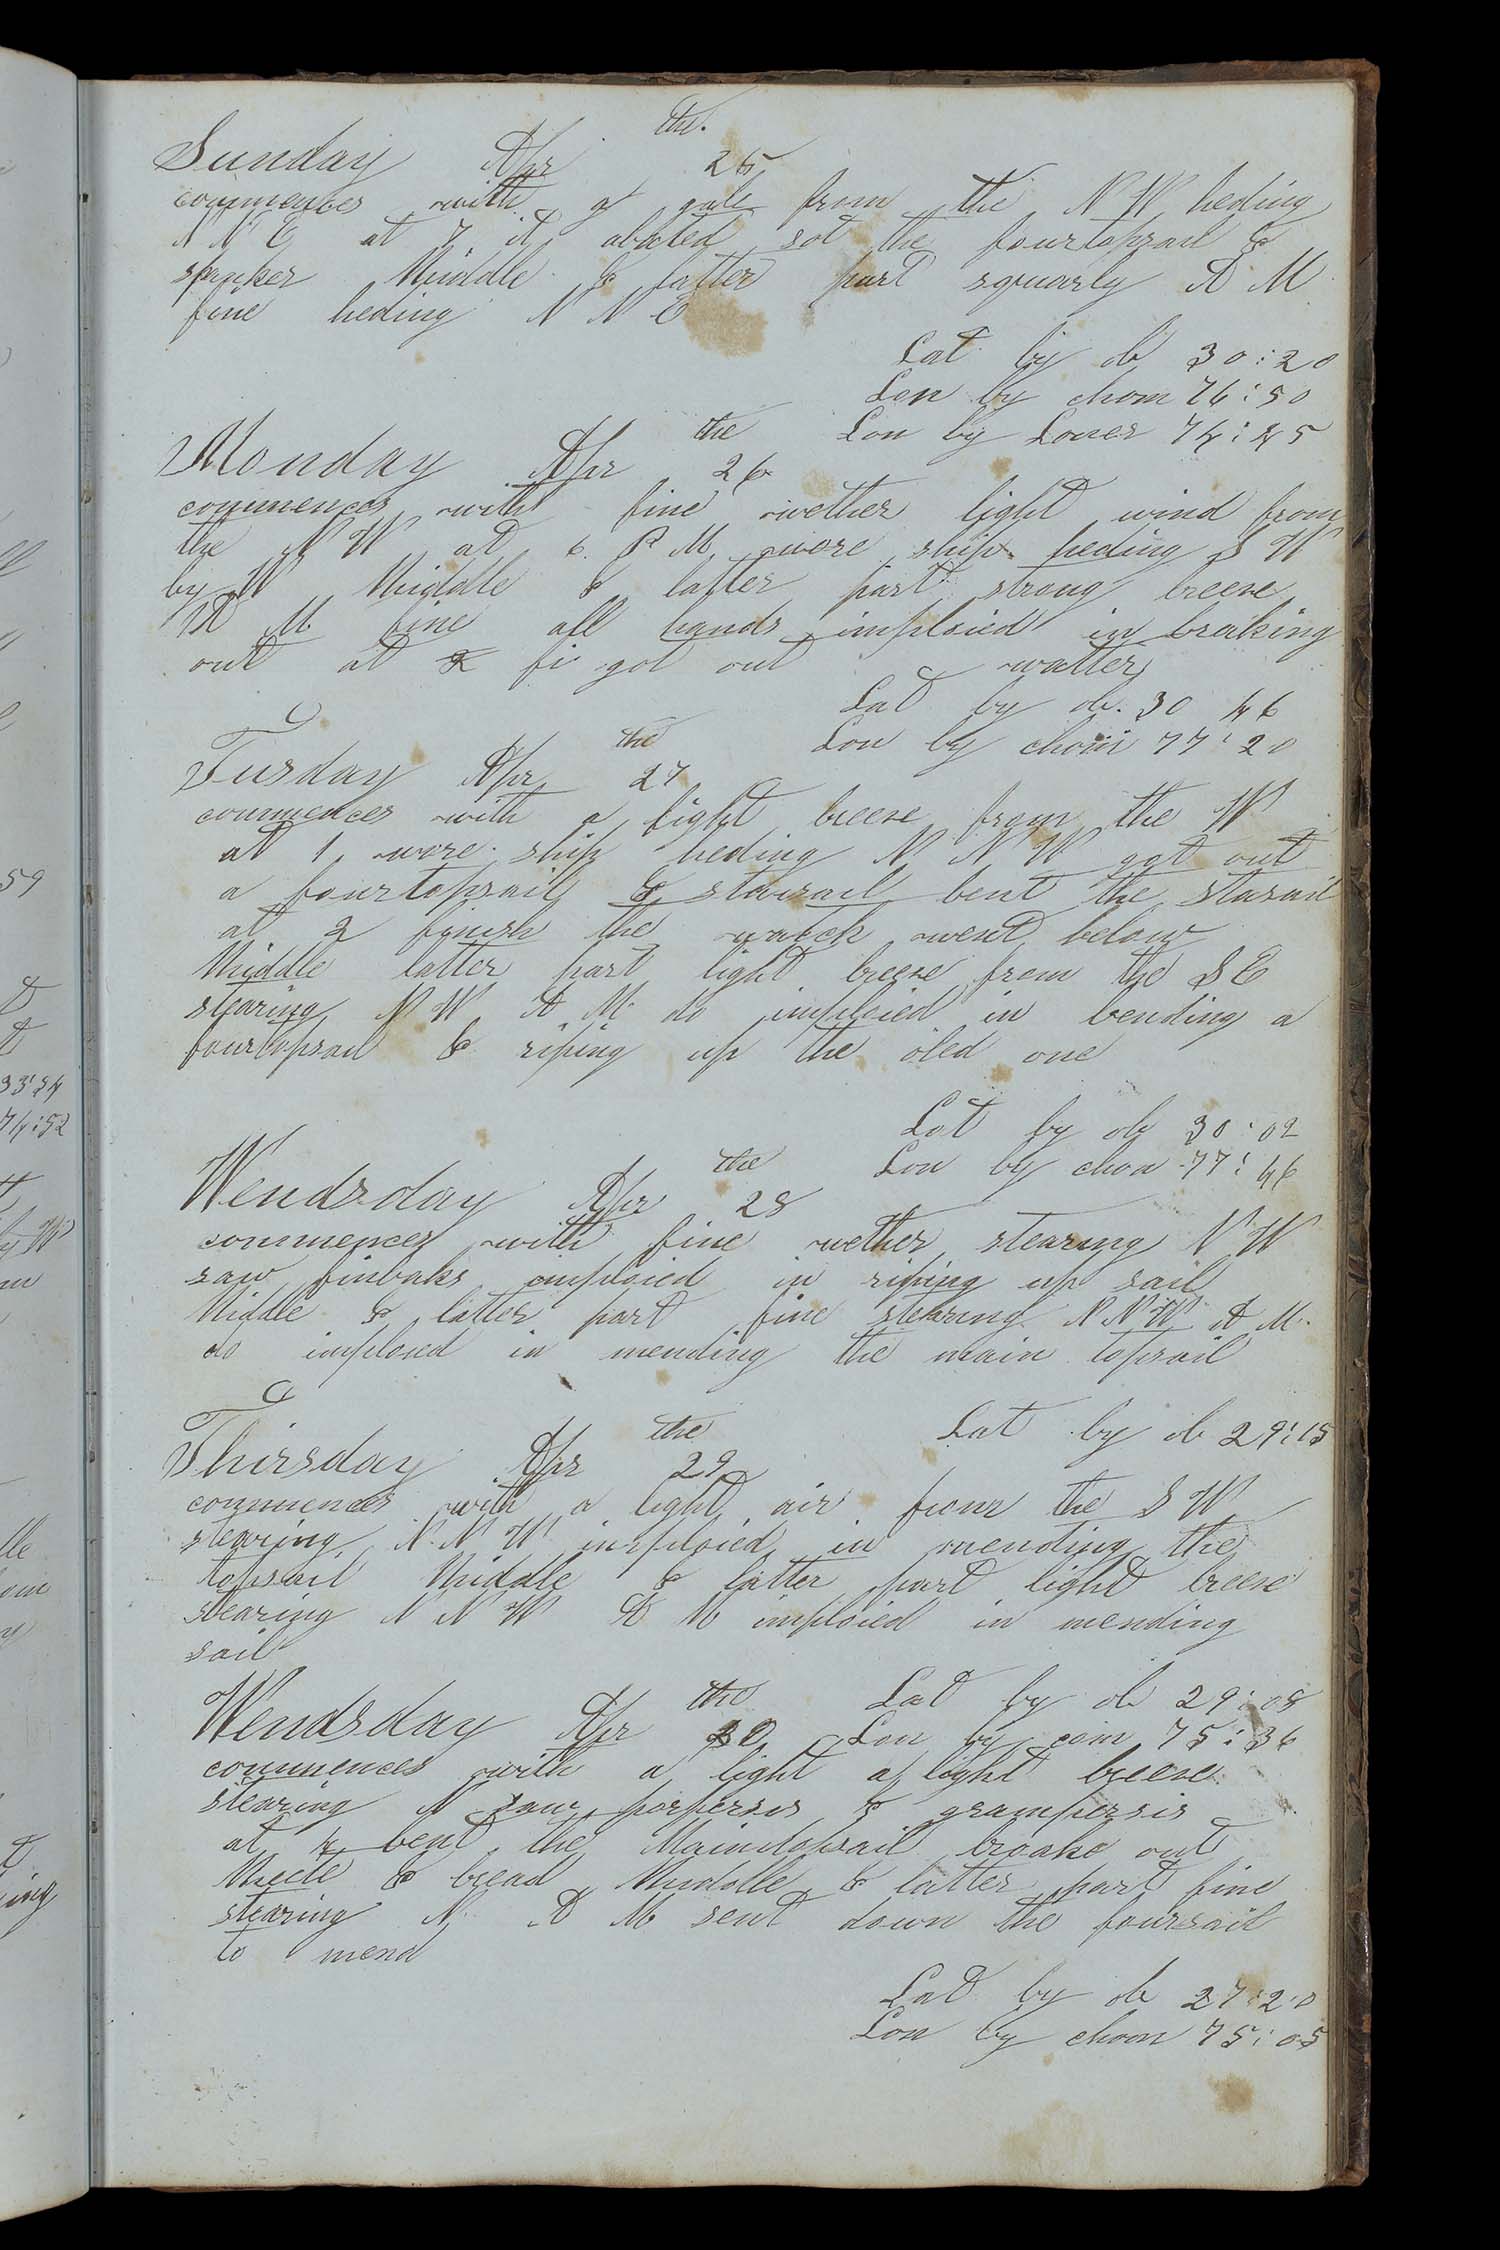 Sunday Apr the. 25
commences with a gale from the N W heding
N N E at 7 it abated sot the fourtopsail &
spanker Middle & latter part squarly A M
fine heding N N E
Lat by ob 30:20
Lon by chom 76:50
Lon by Loner 74:45
Monday Apr the 26
commences with fine wether light wind from
the N W at 6. P M wore ship heding S W
by W Middle & latter part strong breeze
A M fine all hands imploied in breking
out at fi got out watter
Lat by ob. 30 46
Lon by chom 77:20
Tusday Apr the 27
commences with a light breeze from the W
at 1 wore ship heding N N W got out
a fourtopsail & staisail bent the stasail
at 2 finish the watch went below
Middle latter part light breeze from the S E
stearing N W A M do imploied in bending a
fourtopsail & riping up the oled one
Lat by ob 30:02
Lon by chon 77:46
Wendsday Apr the 28
commences with fine wether stearing N W
saw finbaks imploied in riping up sail
Middle & latter part fine stearing N N W A M.
do imploied in mending the main topsail
Lat by ob 29:15
Thirsday Apr the 29
commences with a light air from the S W
stearing N. N W imploied in mending the
topsail Middle & latter part light breeze
stearing N N W A M imploied in mending
sail
Lat by ob 29:08
Wendsday Apr the 30 Lon by com 75:36
commences with a light a light breeze
stearing N saw porperses & grampersis
at 4 bent the Maintopsail broake out
Meete & bread Middle & latter part fine
stearing N. A M sent down the foursail
to mend
Lat by ob 27:20
Lon by chom 75:05
59
33:34
74:52